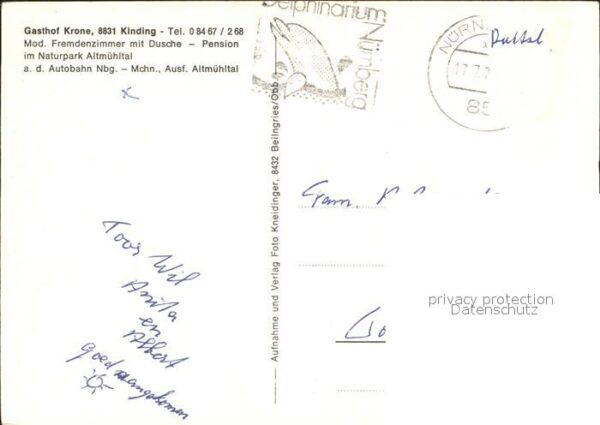 Gasthof Krone, 8831 Kinding - Tel. 08467/268
Mod. Fremdenzimmer mit Dusche – Pension
im Naturpark Altmühltal
a. d. Autobahn Nbg. – Mchn., Ausf. Altmühltal
Delphinarium
Nürnberg
NÜRN
17.7.7
85
Aufnahme und Verlag Foto Kneidinger, 8432 Beilngries/Obb.
Fam.
Toos Wil
Anita
en
Albert
goed aangekomen
privacy protection
Datenschutz